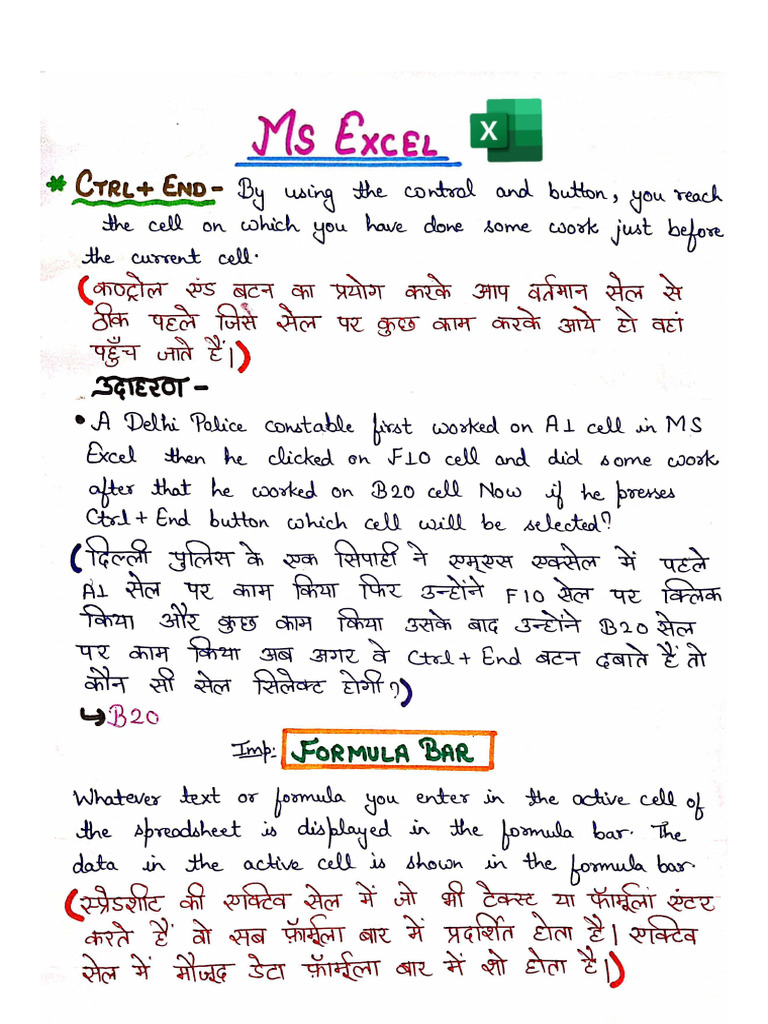 Ms EXCEL
X
* CTRL + END - By using the control and button, you reach
the cell on which you have done some work just before
the current cell.
(कण्ट्रोल एंड बटन का प्रयोग करके आप वर्तमान सेल से
ठीक पहले जिसे सेल पर कुछ काम करके आये हो वहां
पहुँच जाते हैं।)
उदाहरण -
• A Delhi Police constable first worked on A1 cell in MS
Excel then he clicked on F10 cell and did some work
after that he worked on B20 cell Now if he presses
Ctrl + End button which cell will be selected?
(दिल्ली पुलिस के एक सिपाही ने एमएस एक्सेल में पहले
A1 सेल पर काम किया फिर उन्होंने F10 सेल पर क्लिक
किया और कुछ काम किया उसके बाद उन्होंने B20 सेल
पर काम किया अब अगर वे Ctrl + End बटन दबाते हैं तो
कौन सी सेल सिलेक्ट होगी?)
↳ B20
Imp: FORMULA BAR
Whatever text or formula you enter in the active cell of
the spreadsheet is displayed in the formula bar. The
data in the active cell is shown in the formula bar.
(स्प्रेडशीट की एक्टिव सेल में जो भी टेक्स्ट या फॉर्मूला एंटर
करते हैं वो सब फ़ॉर्मूला बार में प्रदर्शित होता है। एक्टिव
सेल में मौजूद डेटा फ़ॉर्मूला बार में शो होता है।)